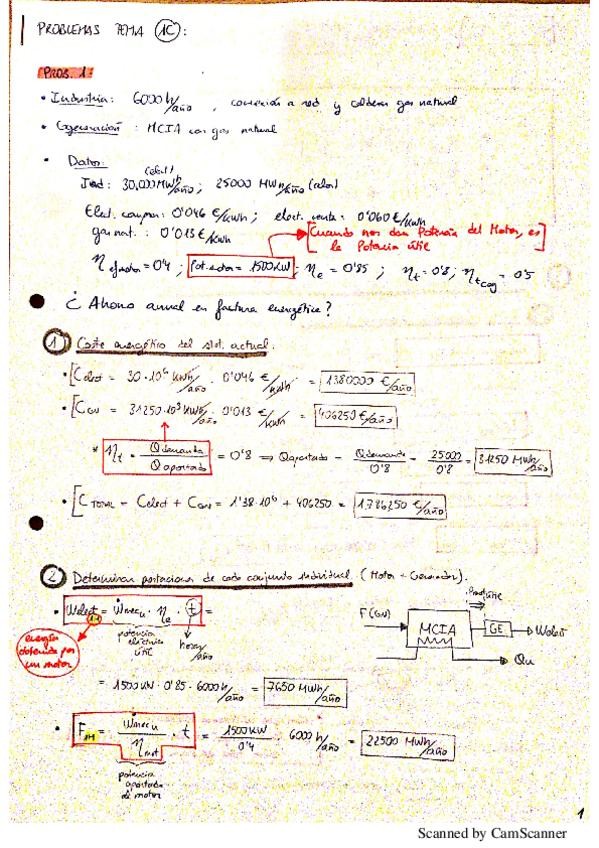 PROBLEMAS TEMA 1C:
PROB. 1:
• Industria: 6000 h/año, conexión a red y calderas gas natural
• Cogeneración: MCIA con gas natural
• Datos:
(elect)
Ind: 30.000 MWh/año; 25000 MWh/año (calor)
Elect. compra: 0'046 €/kWh; elect. venta: 0'060 €/kWh
gas nat.: 0'013 €/kWh
[Cuando nos dan Potencia del Motor, es la Potencia útil]
η efmotor = 0'4; Pot. motor = 1500 kW; ηe = 0'85; ηt = 0'8; ηt cog = 0'5
¿Ahorro anual en factura energética?
① Coste energético del sist. actual.
• [Celect = 30·10⁶ kWh/año · 0'046 €/kWh = 1380000 €/año
• [CGN = 31250·10³ kWh/año · 0'013 €/kWh = 406250 €/año
* ηt = Qdemanda/Qaportado = 0'8 ⇒ Qaportado = Qdemanda/0'8 = 25000/0'8 = 31250 MWh/año
• [CTOTAL = Celect + CGN = 1'38·10⁶ + 406250 = 1786250 €/año
② Determinar prestaciones de cada conjunto individual (Motor + Generador).
• Welect 1M = Ẇmecu · ηe · t =
potencia eléctrica útil
horas/año
energía obtenida por un motor
F(GN)
MCIA
GE
Welect
Qu
= 1500 kW · 0'85 · 6000 h/año = 7650 MWh/año
• F1M = Ẇmecu/ηmot · t = 1500 kW/0'4 · 6000 h/año = 22500 MWh/año
potencia aportada al motor
1
Scanned by CamScanner